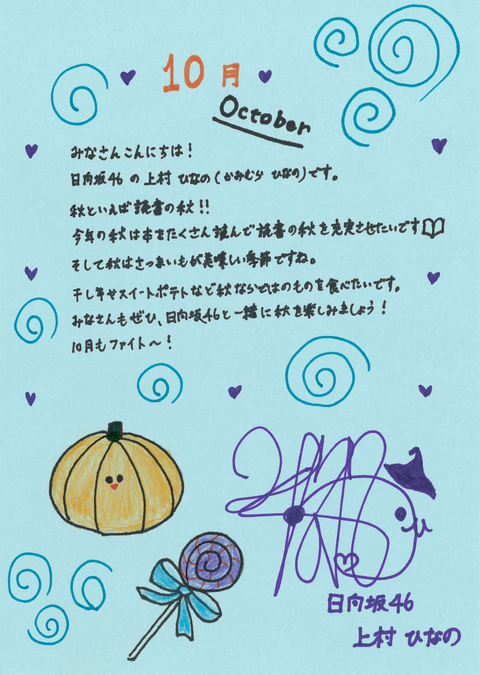 10月
October
みなさんこんにちは！
日向坂46 の 上村 ひなの（かみむら ひなの）です。
秋といえば 読書の秋！！
今年の秋は本をたくさん読んで読書の秋を充実させたいです
そして秋はさつまいもが美味しい季節ですね。
干し芋やスイートポテトなど秋ならではのものを食べたいです。
みなさんもぜひ、日向坂46と一緒に秋を楽しみましょう！
10月もファイト〜！
日向坂46
上村 ひなの